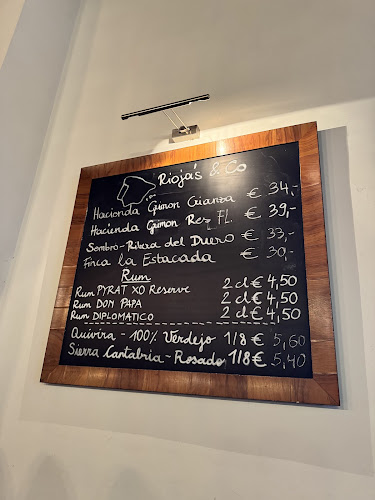 Rioja's & Co
Hacienda Grimon Crianza € 34,-
Hacienda Grimon Res FL. € 39,-
Sembro - Ribera del Duero € 33,-
Finca la Estacada € 30,-
Rum
Rum PYRAT XO Reserve 2 cl € 4,50
Rum DON PAPA 2 cl € 4,50
Rum DIPLOMATICO 2 cl € 4,50
Quivira - 100% Verdejo 1/8 € 5,60
Sierra Cantabria - Rosado 1/8 € 5,40